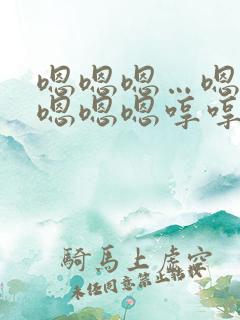 嗯嗯嗯…嗯
嗯嗯嗯哼哼
騎馬上虛空
未经同意禁止转授